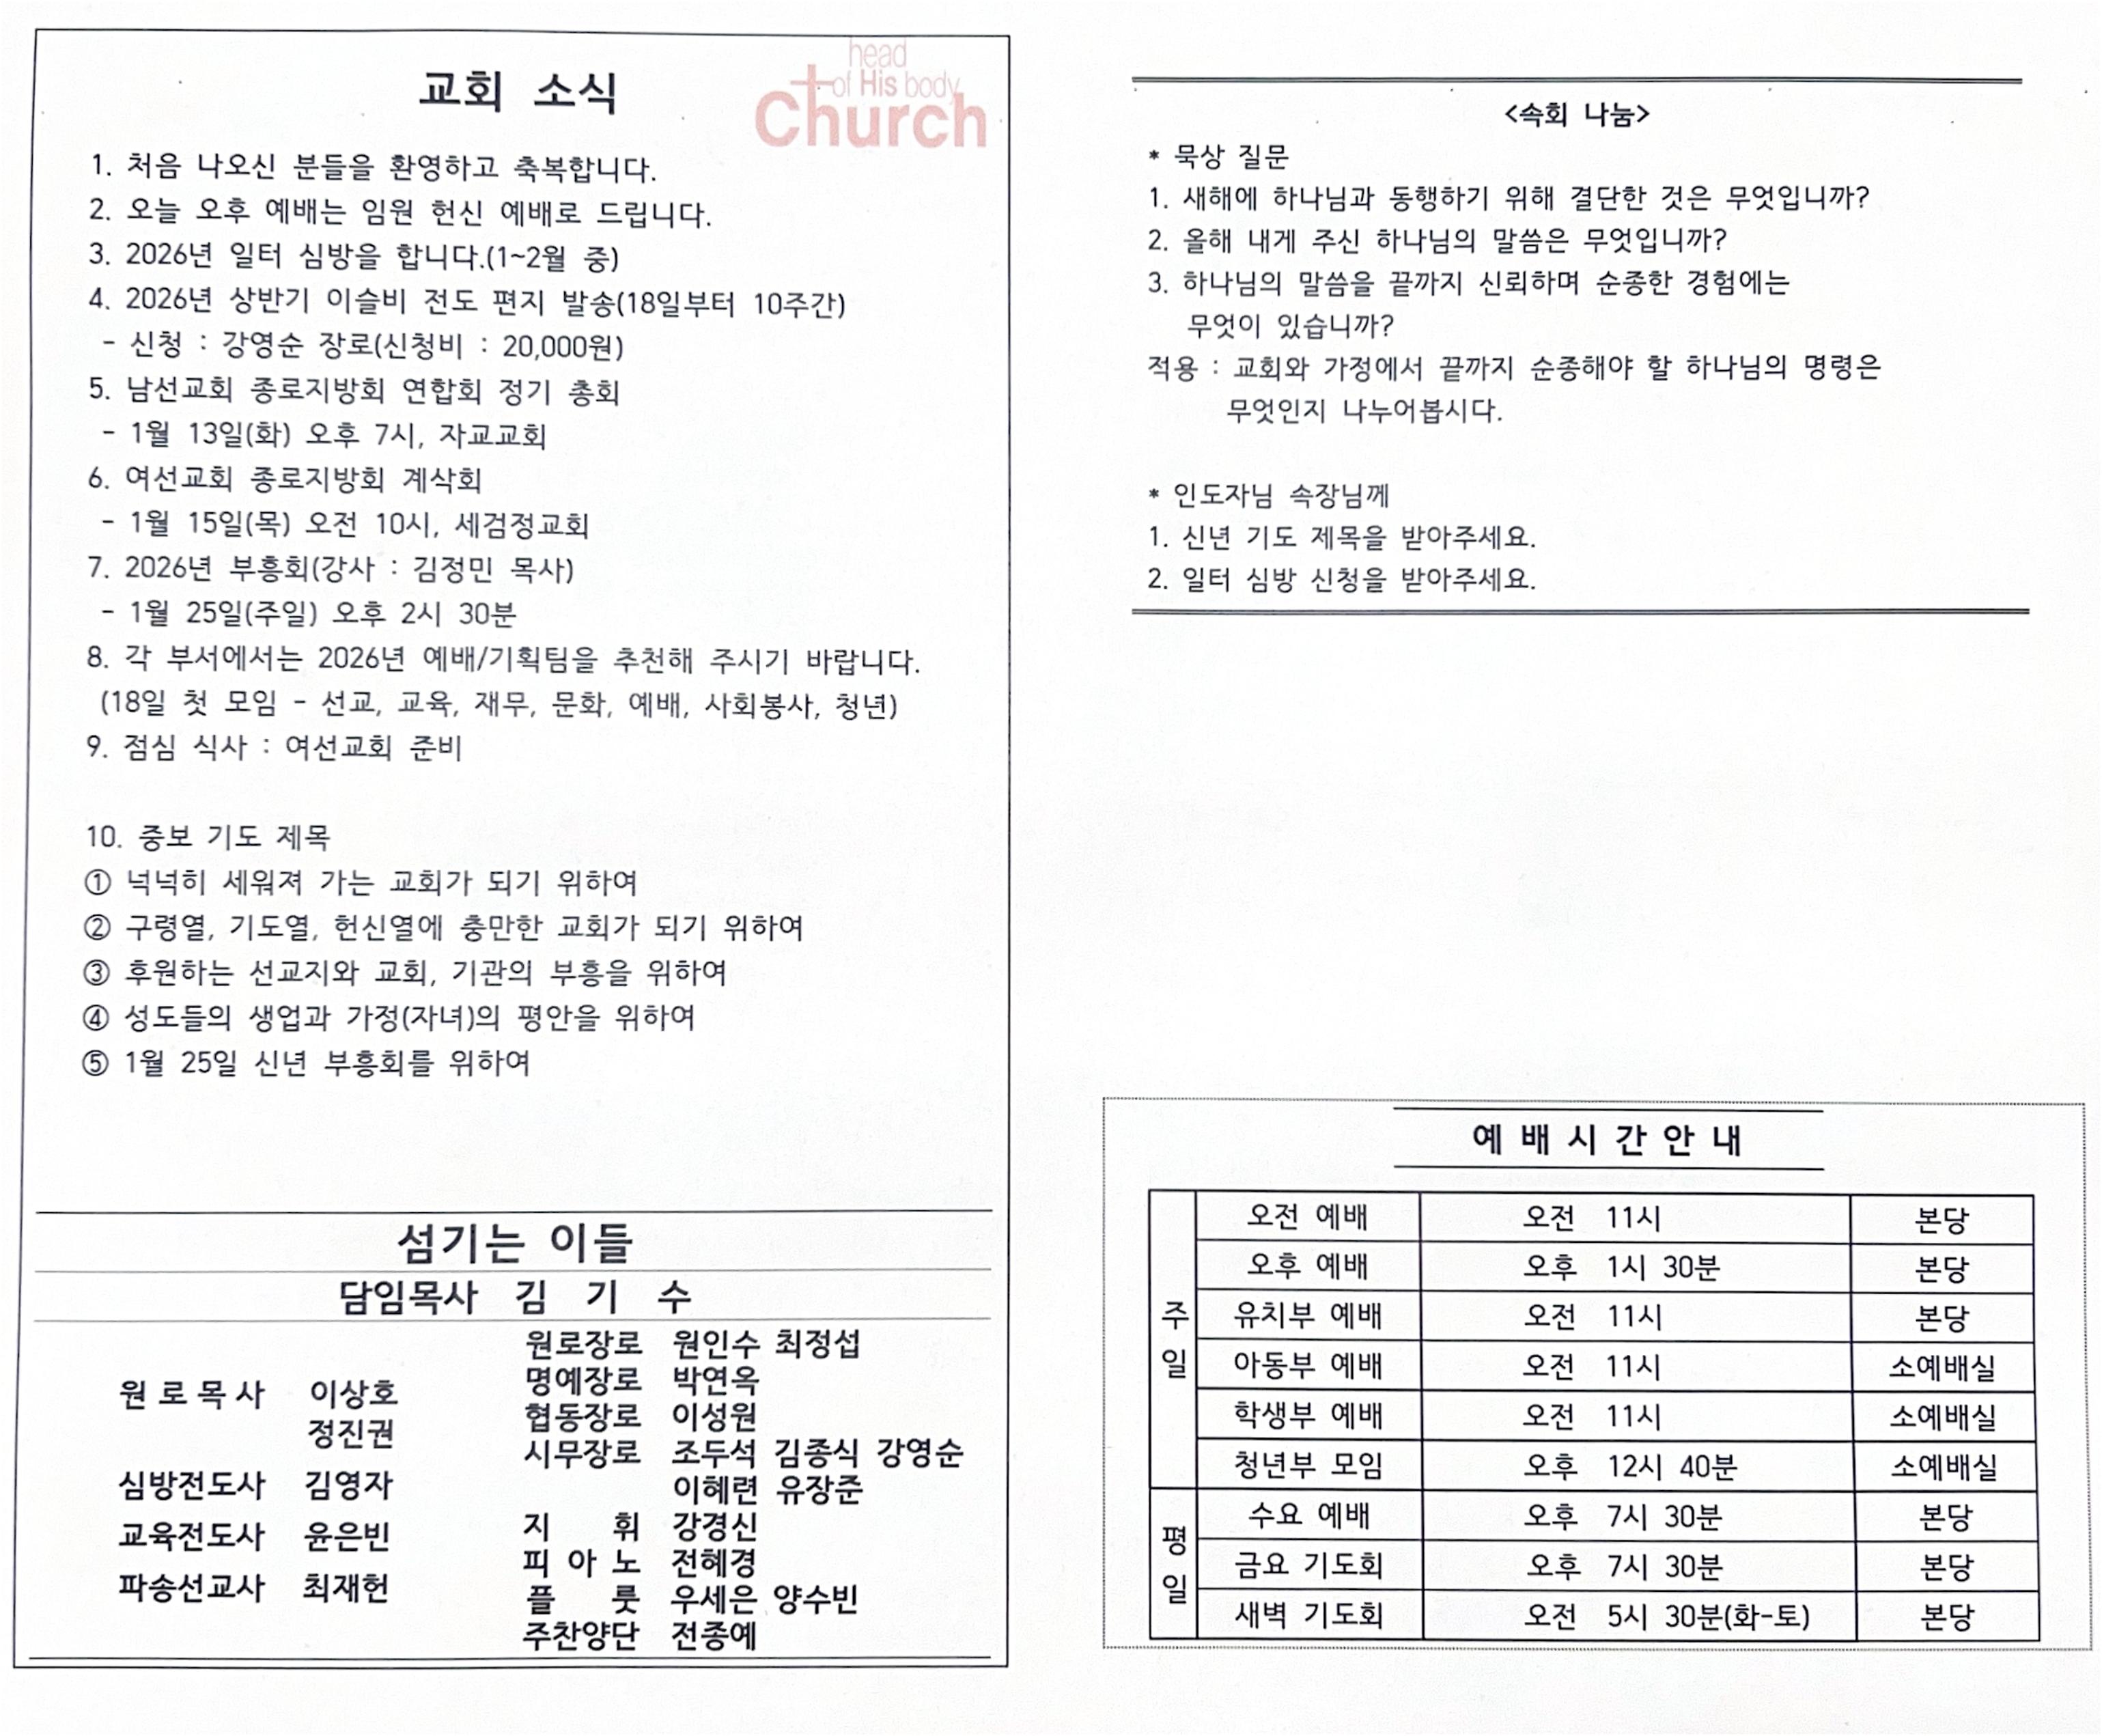 교회 소식
head
of His body
Church
1. 처음 나오신 분들을 환영하고 축복합니다.
2. 오늘 오후 예배는 임원 헌신 예배로 드립니다.
3. 2026년 일터 심방을 합니다.(1~2월 중)
4. 2026년 상반기 이슬비 전도 편지 발송(18일부터 10주간)
- 신청 : 강영순 장로(신청비 : 20,000원)
5. 남선교회 종로지방회 연합회 정기 총회
- 1월 13일(화) 오후 7시, 자교교회
6. 여선교회 종로지방회 계삭회
- 1월 15일(목) 오전 10시, 세검정교회
7. 2026년 부흥회(강사 : 김정민 목사)
- 1월 25일(주일) 오후 2시 30분
8. 각 부서에서는 2026년 예배/기획팀을 추천해 주시기 바랍니다.
(18일 첫 모임 - 선교, 교육, 재무, 문화, 예배, 사회봉사, 청년)
9. 점심 식사 : 여선교회 준비
10. 중보 기도 제목
① 넉넉히 세워져 가는 교회가 되기 위하여
② 구령열, 기도열, 헌신열에 충만한 교회가 되기 위하여
③ 후원하는 선교지와 교회, 기관의 부흥을 위하여
④ 성도들의 생업과 가정(자녀)의 평안을 위하여
⑤ 1월 25일 신년 부흥회를 위하여
섬기는 이들
담임목사 김 기 수
원로목사 이상호
정진권
심방전도사 김영자
교육전도사 윤은빈
파송선교사 최재헌
원로장로 원인수 최정섭
명예장로 박연옥
협동장로 이성원
시무장로 조두석 김종식 강영순
이혜련 유장준
지 휘 강경신
피 아 노 전혜경
플 룻 우세은 양수빈
주찬양단 전종예
<속회 나눔>
* 묵상 질문
1. 새해에 하나님과 동행하기 위해 결단한 것은 무엇입니까?
2. 올해 내게 주신 하나님의 말씀은 무엇입니까?
3. 하나님의 말씀을 끝까지 신뢰하며 순종한 경험에는
무엇이 있습니까?
적용 : 교회와 가정에서 끝까지 순종해야 할 하나님의 명령은
무엇인지 나누어봅시다.
* 인도자님 속장님께
1. 신년 기도 제목을 받아주세요.
2. 일터 심방 신청을 받아주세요.
예 배 시 간 안 내
주일
오전 예배 오전 11시 본당
오후 예배 오후 1시 30분 본당
유치부 예배 오전 11시 본당
아동부 예배 오전 11시 소예배실
학생부 예배 오전 11시 소예배실
청년부 모임 오후 12시 40분 소예배실
평일
수요 예배 오후 7시 30분 본당
금요 기도회 오후 7시 30분 본당
새벽 기도회 오전 5시 30분(화-토) 본당